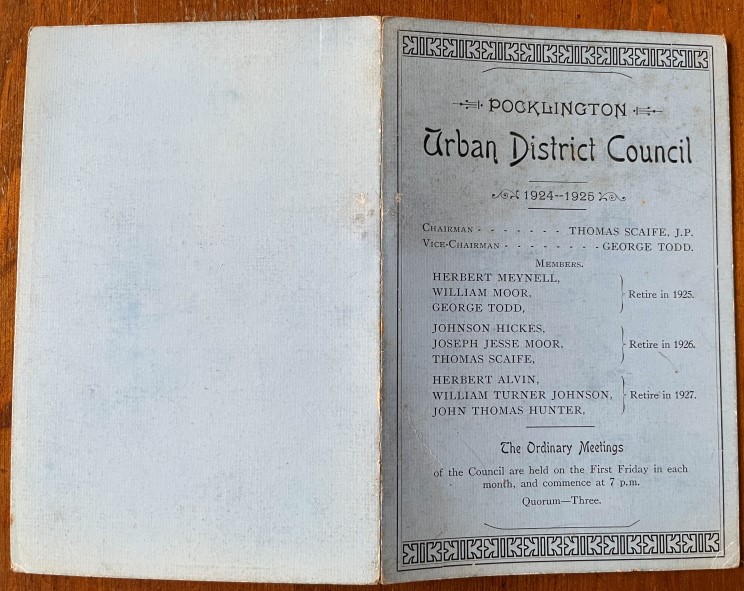 POCKLINGTON
Urban District Council
1924--1925
CHAIRMAN - - - - - - - THOMAS SCAIFE, J.P.
VICE-CHAIRMAN - - - - - - - - GEORGE TODD.
MEMBERS.
HERBERT MEYNELL,
WILLIAM MOOR, Retire in 1925.
GEORGE TODD,
JOHNSON HICKES,
JOSEPH JESSE MOOR, Retire in 1926.
THOMAS SCAIFE,
HERBERT ALVIN,
WILLIAM TURNER JOHNSON, Retire in 1927.
JOHN THOMAS HUNTER,
The Ordinary Meetings
of the Council are held on the First Friday in each
month, and commence at 7 p.m.
Quorum—Three.